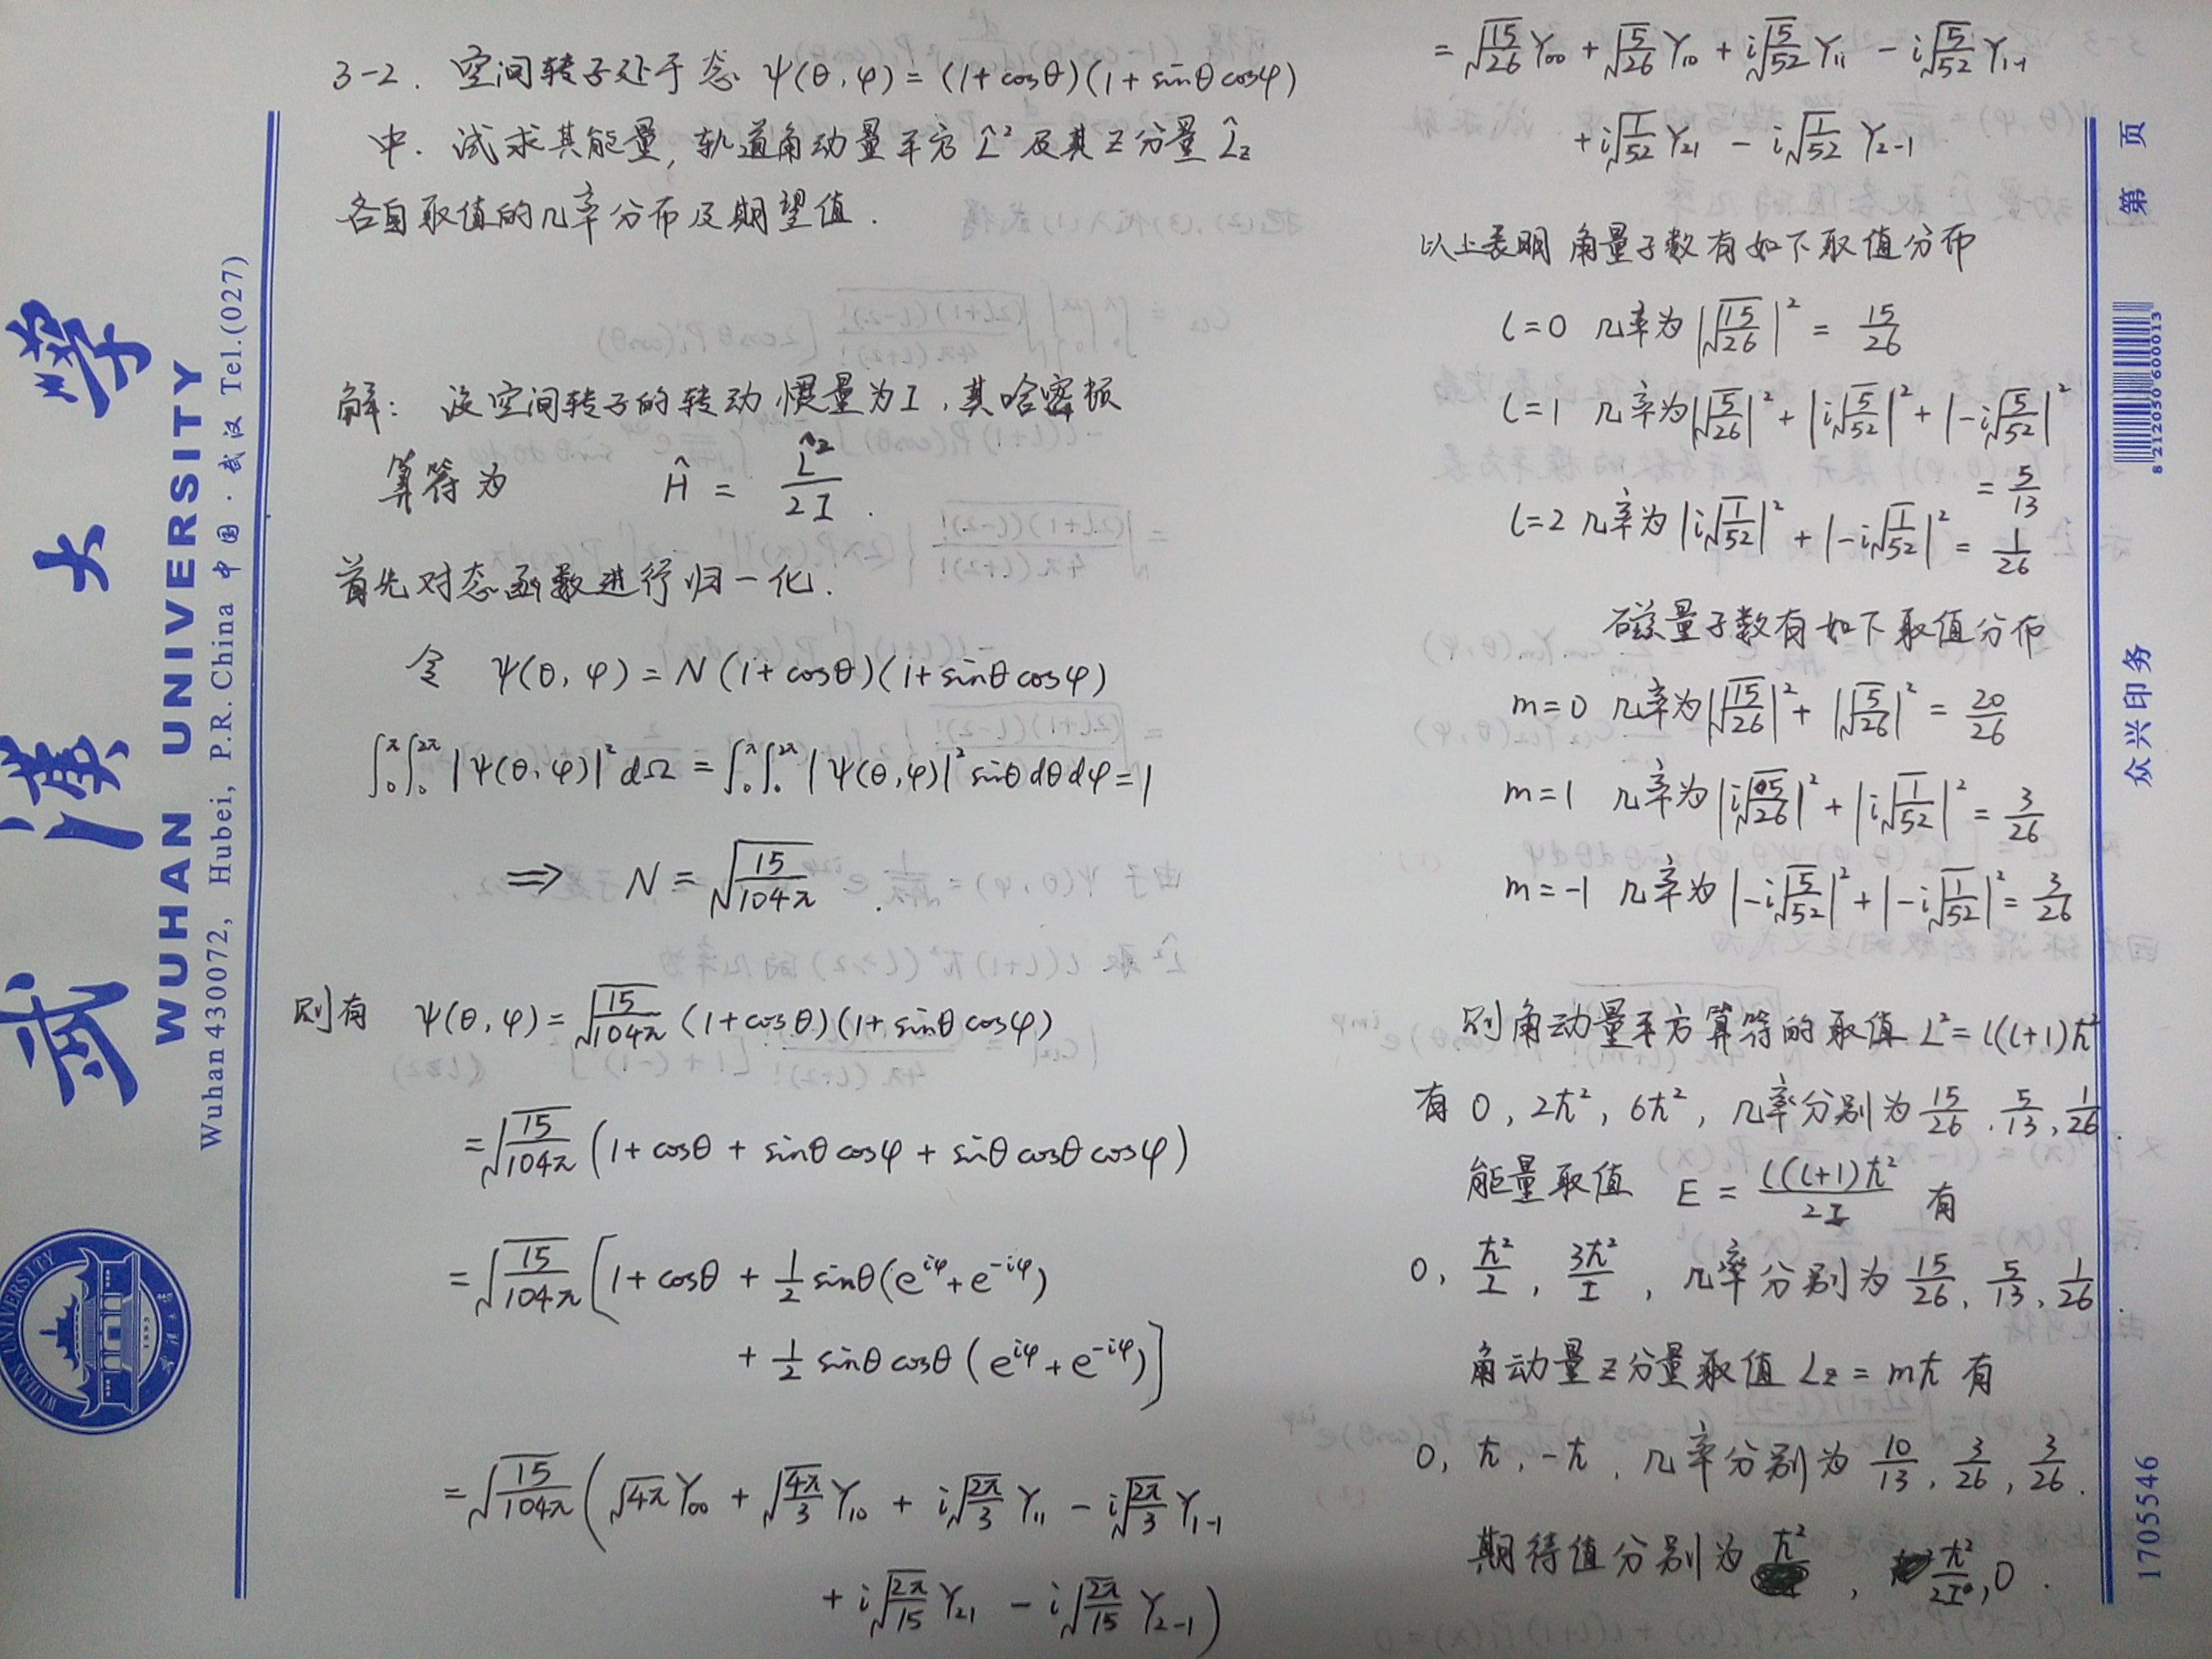 3-2. 空间转子处于态 ψ(θ,φ) = (1+cosθ)(1+sinθcosφ)
中. 试求其能量, 轨道角动量平方 L̂² 及其 z 分量 L̂z
各自取值的几率分布及期望值.
解: 设空间转子的转动惯量为I, 其哈密顿
算符为 Ĥ = L̂²/2I.
首先对态函数进行归一化.
令 ψ(θ,φ) = N(1+cosθ)(1+sinθcosφ)
∫₀^π∫₀^2π |ψ(θ,φ)|² dΩ = ∫₀^π∫₀^2π |ψ(θ,φ)|² sinθdθdφ = 1
⟹ N = √(15/104π).
则有 ψ(θ,φ) = √(15/104π) (1+cosθ)(1+sinθcosφ)
= √(15/104π) (1+cosθ + sinθcosφ + sinθcosθcosφ)
= √(15/104π) [1+cosθ + 1/2 sinθ(e^{iφ}+e^{-iφ})
+ 1/2 sinθcosθ(e^{iφ}+e^{-iφ})]
= √(15/104π) (√4π Y₀₀ + √(4π/3) Y₁₀ + i√(2π/3) Y₁₁ - i√(2π/3) Y₁₋₁
+ i√(2π/15) Y₂₁ - i√(2π/15) Y₂₋₁)
= √(15/26) Y₀₀ + √(5/26) Y₁₀ + i√(5/52) Y₁₁ - i√(5/52) Y₁₋₁
+ i√(1/52) Y₂₁ - i√(1/52) Y₂₋₁
以上表明角量子数有如下取值分布
l=0 几率为 |√(15/26)|² = 15/26
l=1 几率为 |√(5/26)|² + |i√(5/52)|² + |-i√(5/52)|²
= 5/13
l=2 几率为 |i√(1/52)|² + |-i√(1/52)|² = 1/26
磁量子数有如下取值分布
m=0 几率为 |√(15/26)|² + |√(5/26)|² = 20/26
m=1 几率为 |i√(5/26)|² + |i√(1/52)|² = 3/26
m=-1 几率为 |-i√(5/52)|² + |-i√(1/52)|² = 3/26
则角动量平方算符的取值 L²=l(l+1)ħ²
有 0, 2ħ², 6ħ², 几率分别为 15/26, 5/13, 1/26.
能量取值 E = l(l+1)ħ²/2I 有
0, ħ²/I, 3ħ²/I, 几率分别为 15/26, 5/13, 1/26.
角动量z分量取值 Lz = mħ 有
0, ħ, -ħ, 几率分别为 10/13, 3/26, 3/26.
期待值分别为 ħ², ħ²/2I, 0.
武汉大学
WUHAN UNIVERSITY
Wuhan 430072, Hubei, P.R. China 中国·武汉 Tel.(027)
WUHAN UNIVERSITY
第 页
8 212050 600013
众兴印务
1705546